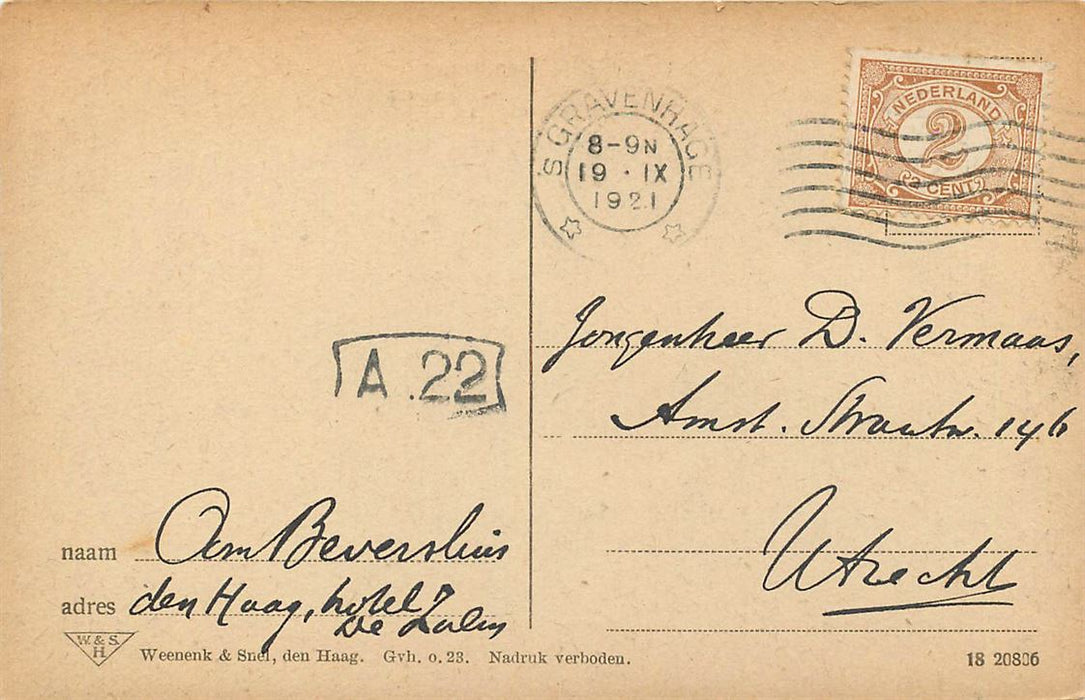 S GRAVENHAGE
8-9N
19 · IX
1921
NEDERLAND
2
2 CENT 2
A .22
Jongenheer D. Vermaas,
Amst. Straatw. 146
Utrecht
naam Oom Beversluis
adres den Haag, hotel
De Zalm
W. & S.
H
Weenenk & Snel, den Haag. Gvh. o. 23. Nadruk verboden.
18 20806